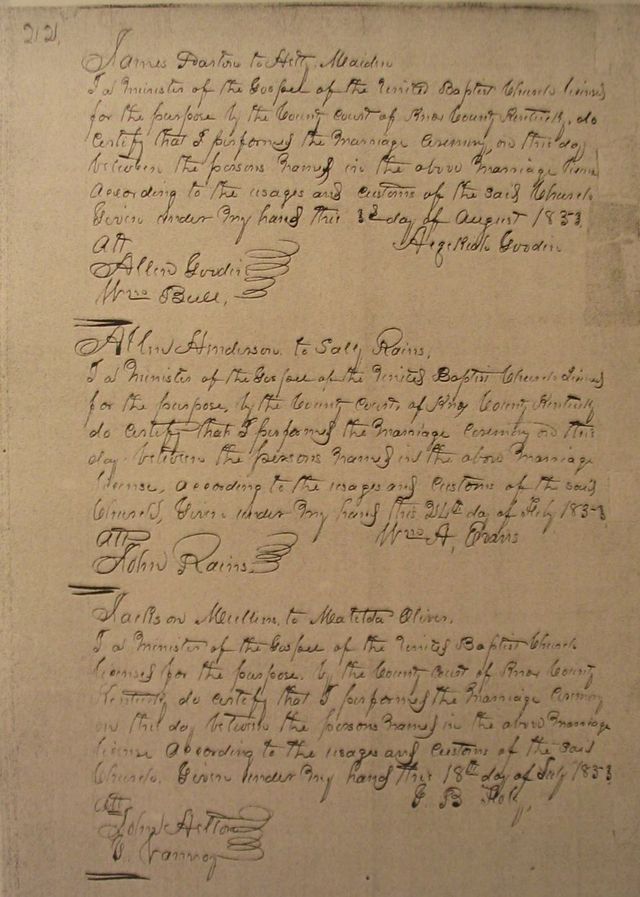 212,
James to Hetty Maiden
I a Minister of the Gospel of the United Baptist Church licensed
for the purpose by the County Court of Knox County Kentucky, do
Certify that I performed the Marriage Ceremony, on this day
between the persons named in the above Marriage license
According to the usages and customs of the said Church
Given under My hand this 3d day of August 1853
Att Hezekiah Goodin
Allen Goodin
Wm Bull,
Allen Henderson to Sally Rains,
I a Minister of the Gospel of the United Baptist Church licensed
for the purpose, by the County Court of Knox County Kentucky
do certify that I performed the Marriage Ceremony on this
day between the persons named in the above Marriage
license, according to the usages and customs of the said
Church, Given under My hand this 24th day of July 1853
Att Wm A, Evans
John Rains.
Jackson Mullins, to Matilda Oliver,
I a Minister of the Gospel of the United Baptist Church
licensed for the purpose, by the County Court of Knox County
Kentucky do certify that I performed the Marriage Ceremony
on this day between the persons named in the above Marriage
license According to the usages and customs of the said
Church. Given under My hand this 18th day of July 1853
Att J. B.
John Helton
Vannoy